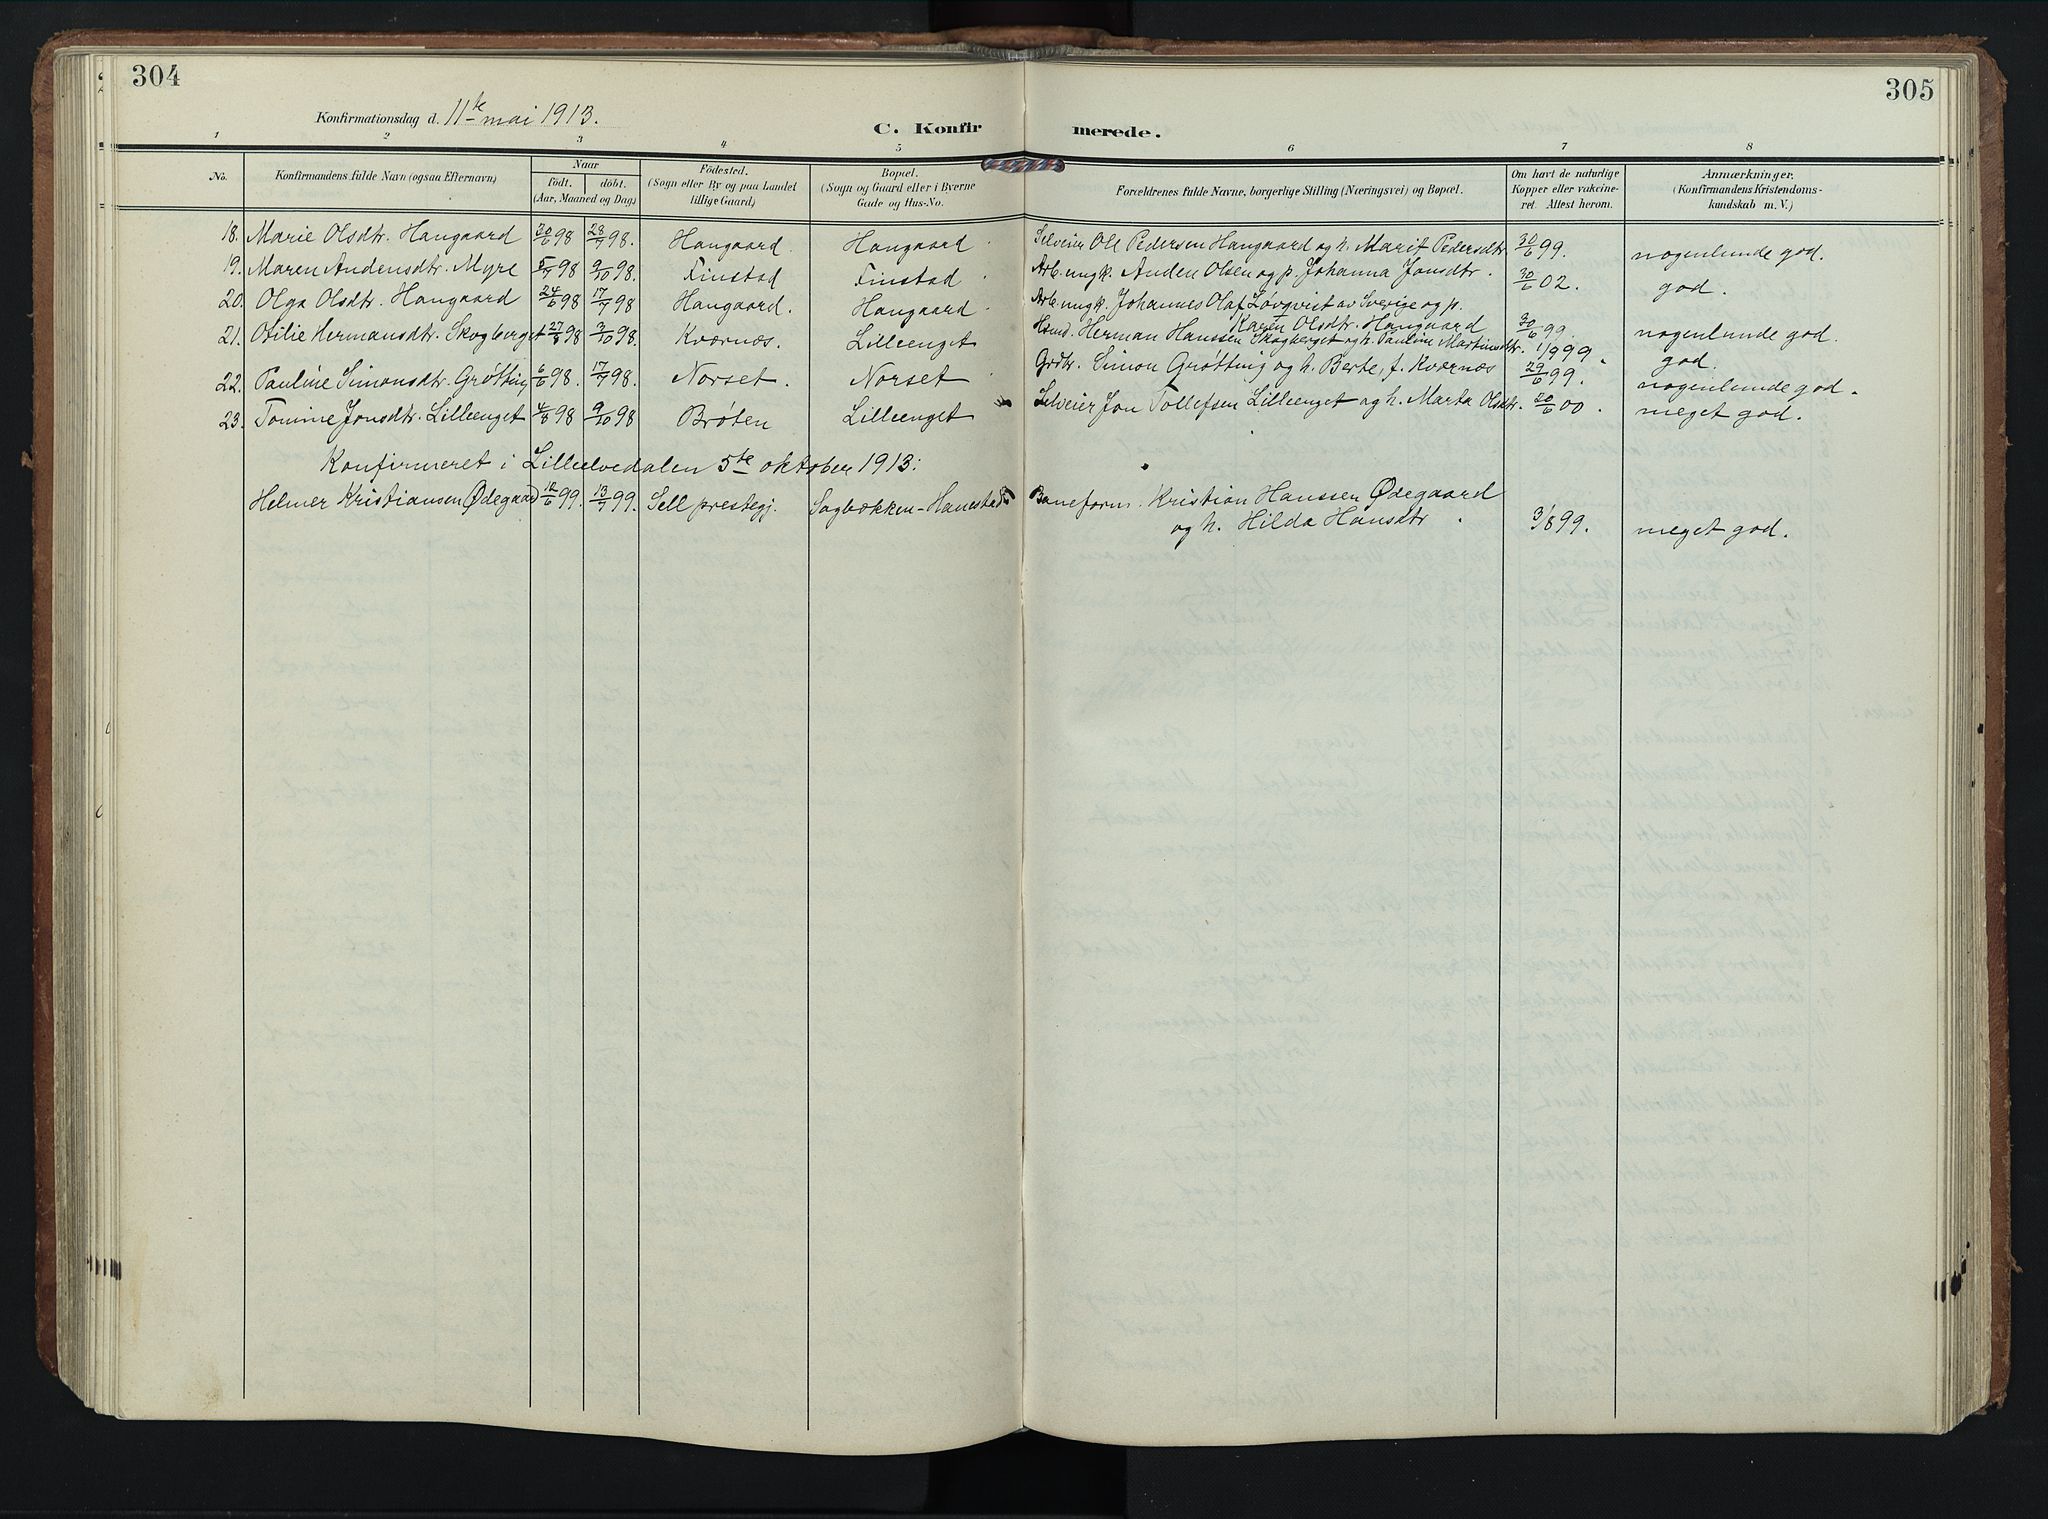 304
305
Konfirmationsdag d. 11te mai 1913.
C. Konfirmerede.
1 2 3 4 5 6 7 8
No. Konfirmandens fulde Navn (ogsaa Efternavn) Naar födt. döbt. (Aar, Maaned og Dag) Födested. (Sogn eller By og paa Landet tillige Gaard) Bopæl. (Sogn og Gaard eller i Byerne Gade og Hus-No. Forældrenes fulde Navne, borgerlige Stilling (Næringsvei) og Bopæl. Om havt de naturlige Kopper eller vakcineret. Attest herom. Anmærkninger. (Konfirmandens Kristendomskundskab m. V.)
18. Marie Olsdtr. Hangaard 30/6 98 28/7 98. Hangaard. Hangaard. Selveier Ole Pedersen Hangaard og h. Marit Pedersdtr. 30/6 99. nogenlunde god.
19. Maren Andensdtr. Myre 5/7 98 9/10 98. Finstad Finstad. Arb. ungk. Anden Olsen og p. Johanna Jonsdtr. 30/6 02. god.
20. Olga Olsdtr. Hangaard 24/6 98 17/7 98 Hangaard. Hangaard. Arb. ungk. Johannes Olaf Løvqvist av Sverige og p.
Karen Olsdtr. Hangaard 30/6 99. nogenlunde god.
21. Otilie Hermansdtr. Skogberget 27/8 98 2/10 98. Kværnæs. Lilleenget Hsmd. Herman Hanssen Skogberget og h. Pauline Martinsdtr. 1/9 99. god.
22. Pauline Simonsdtr. Grøtting 6/6 98. 17/7 98. Norset. Norset. Grdbr. Simon Grøtting og h. Berte, f. Kværnæs 29/6 99. nogenlunde god.
23. Tomine Jonsdtr. Lilleenget 4/8 98 9/10 98 Brøten Lilleenget Selveier Jon Tollefsen Lilleenget og h. Marta Olsdtr. 20/6 00. meget god.
Konfirmeret i Lilleelvedalen 5te oktober 1913:
Helmer Kristiansen Ødegaard 12/6 99. 13/7 99. Sell prestegj. Sagbækken-Hanestad Baneform. Kristian Hanssen Ødegaard
og h. Hilda Hansdtr. 3/8 99. meget god.